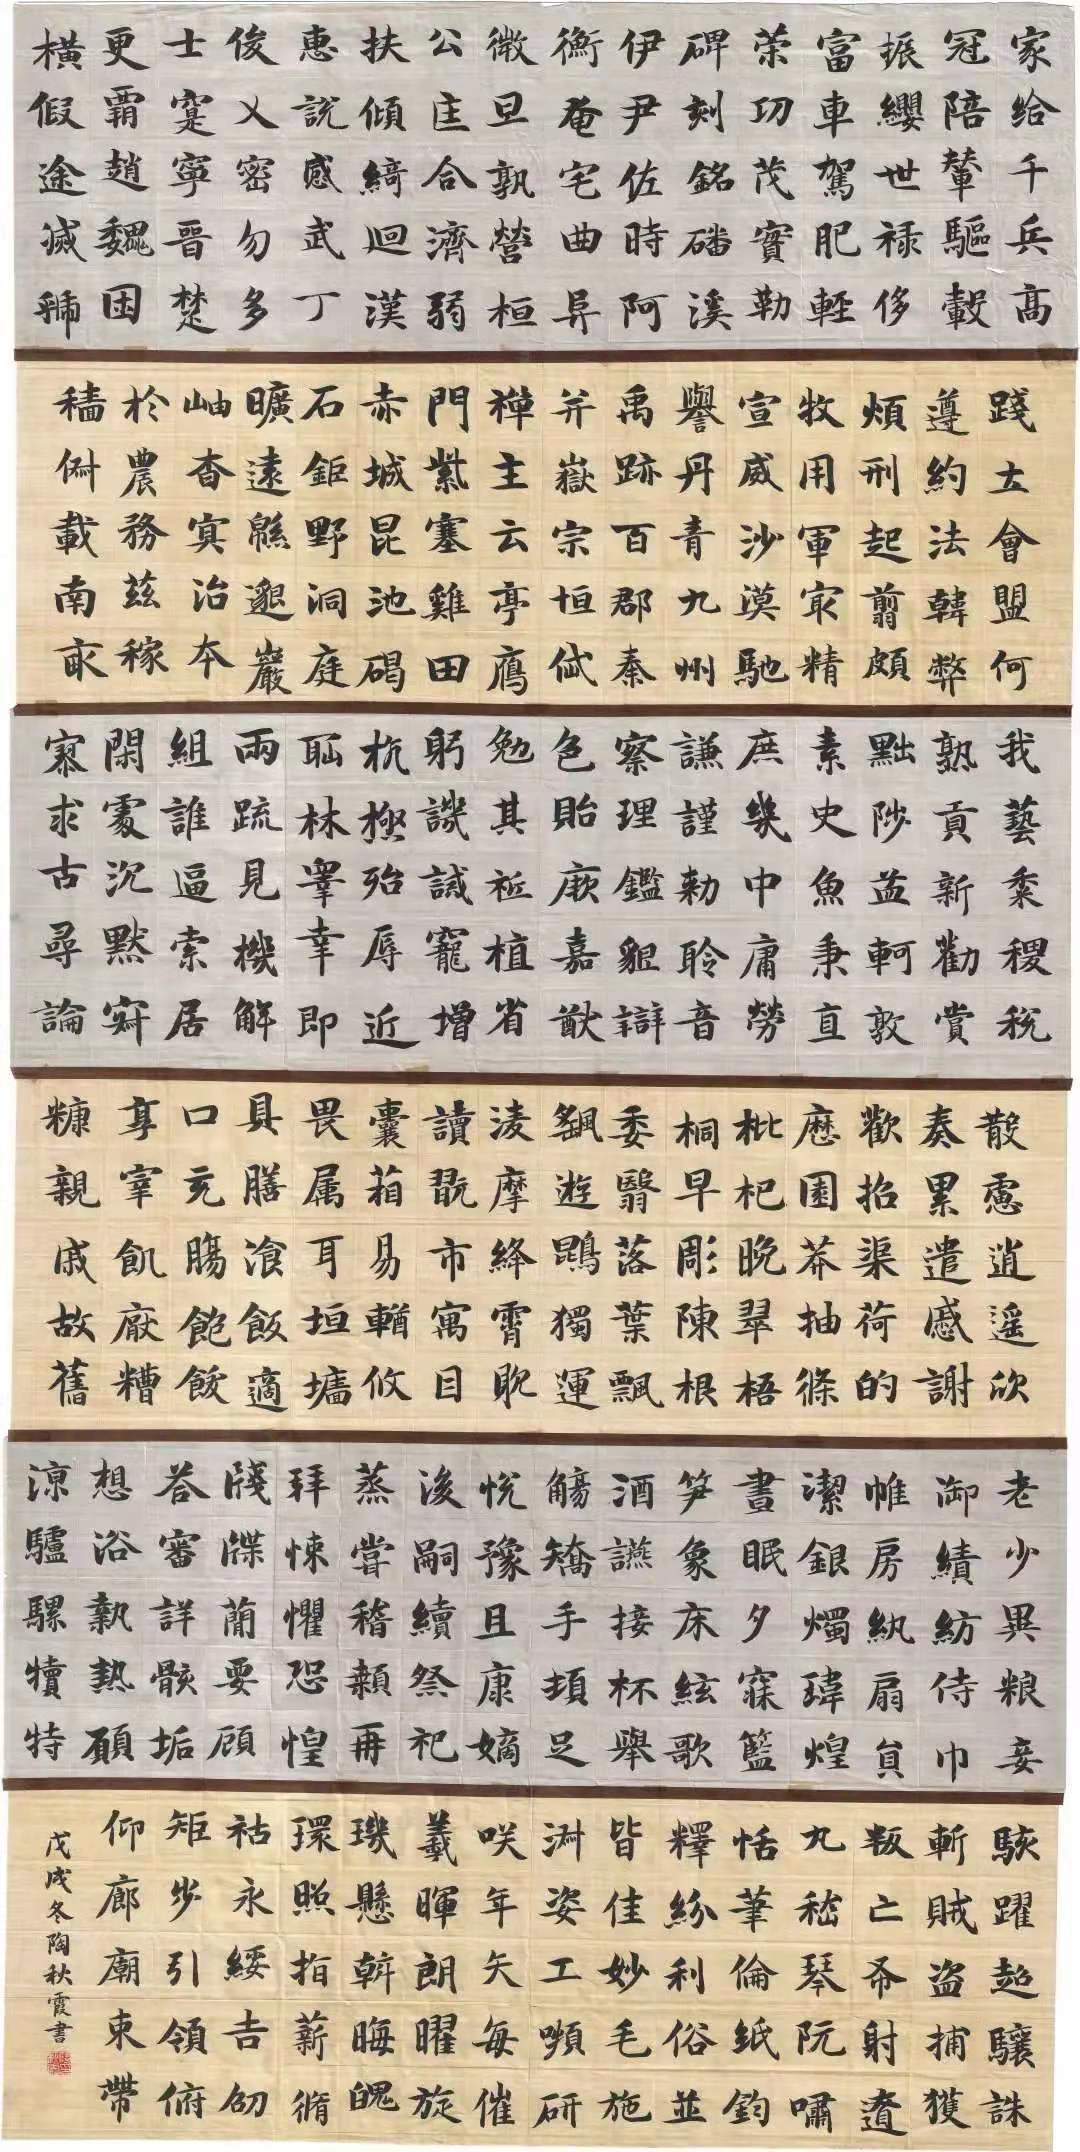 家给千兵高
冠陪輦驅轂
振纓世禄侈
富車駕肥輕
荣功茂實勒
碑刻銘磻溪
伊尹佐時阿
衡奄宅曲阜
微旦孰營桓
公匡合濟弱
扶傾綺迴漢
惠説感武丁
俊乂密勿多
士寔寧晉楚
更霸趙魏困
橫假途滅虢
踐土會盟何
遵約法韓弊
煩刑起翦頗
牧用軍最精
宣威沙漠馳
譽丹青九州
禹跡百郡秦
并嶽宗恒岱
禪主云亭鴈
門紫塞雞田
赤城昆池碣
石鉅野洞庭
曠遠緜邈巖
岫杳冥治本
於農務茲稼
穡俶載南畝
我藝黍稷稅
熟貢新勸賞
黜陟孟軻敦
素史魚秉直
庶幾中庸勞
謙謹勅聆音
察理鑑貌辯
色貽厥嘉猷
勉其祗植省
躬譏誡寵增
抗極殆辱近
恥林皋幸即
兩疏見機解
組誰逼索居
閑處沉默寂
寥求古尋論
散慮逍遥欣
奏累遣慼謝
歡招渠荷的
歷園莽抽條
枇杷晚翠梧
桐早彫陳根
委翳落葉飄
颻遊鵾獨運
凌摩絳霄耽
讀翫市寓目
囊箱易輶攸
畏属耳垣墻
具膳飡飯適
口充腸飽飫
享宰飢厭糟
糠親戚故舊
老少異粮妾
御績紡侍巾
帷房紈扇員
潔銀燭煒煌
晝眠夕寐籃
笋象床絃歌
酒讌接杯舉
觴矯手頓足
悅豫且康嫡
後嗣續祭祀
蒸嘗稽顙再
拜悚懼恐惶
牋牒簡要顧
答審詳骸垢
想浴執熱願
涼驢騾犢特
駭躍超驤誅
斬賊盜捕獲
叛亡布射遼
丸嵇琴阮嘯
恬筆倫紙鈞
釋紛利俗並
皆佳妙毛施
淑姿工嚬研
咲年矢每催
羲暉朗曜旋
璣懸斡晦魄
環照指薪脩
祜永綏吉劭
矩步引領俯
仰廊廟束帶
戊戌冬陶秋霞書